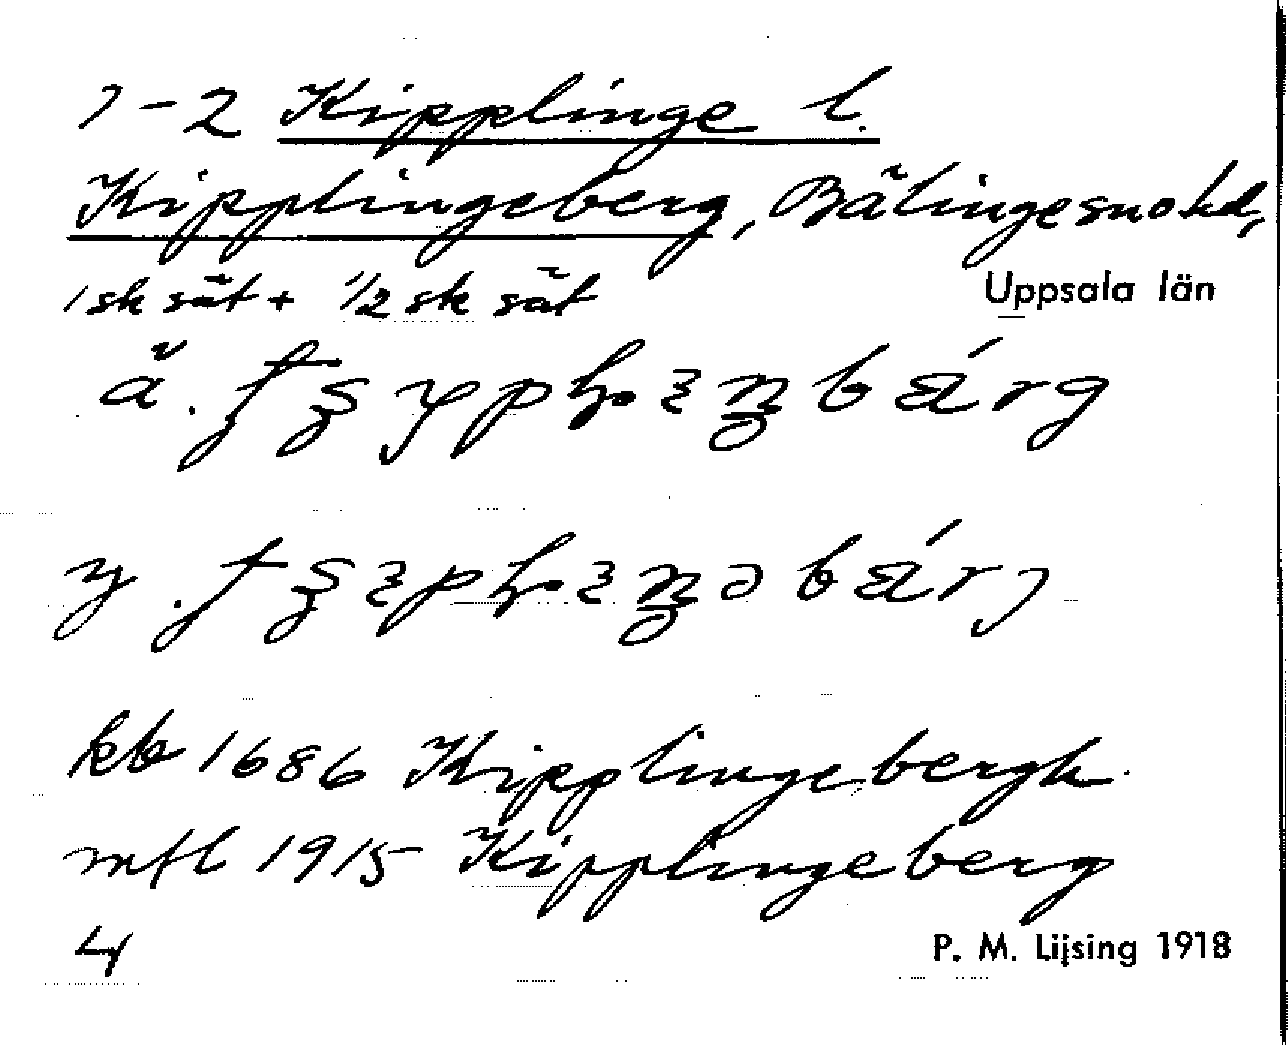 1-2 Kipplinge l.
Kipplingeberg, Bälingesno hd,
1 sk sät + 1/2 sk sät
Uppsala län
ä.
y.
kb 1686 Kipplingebergh
mfl 1915 Kipplingeberg
4
P. M. Lijsing 1918